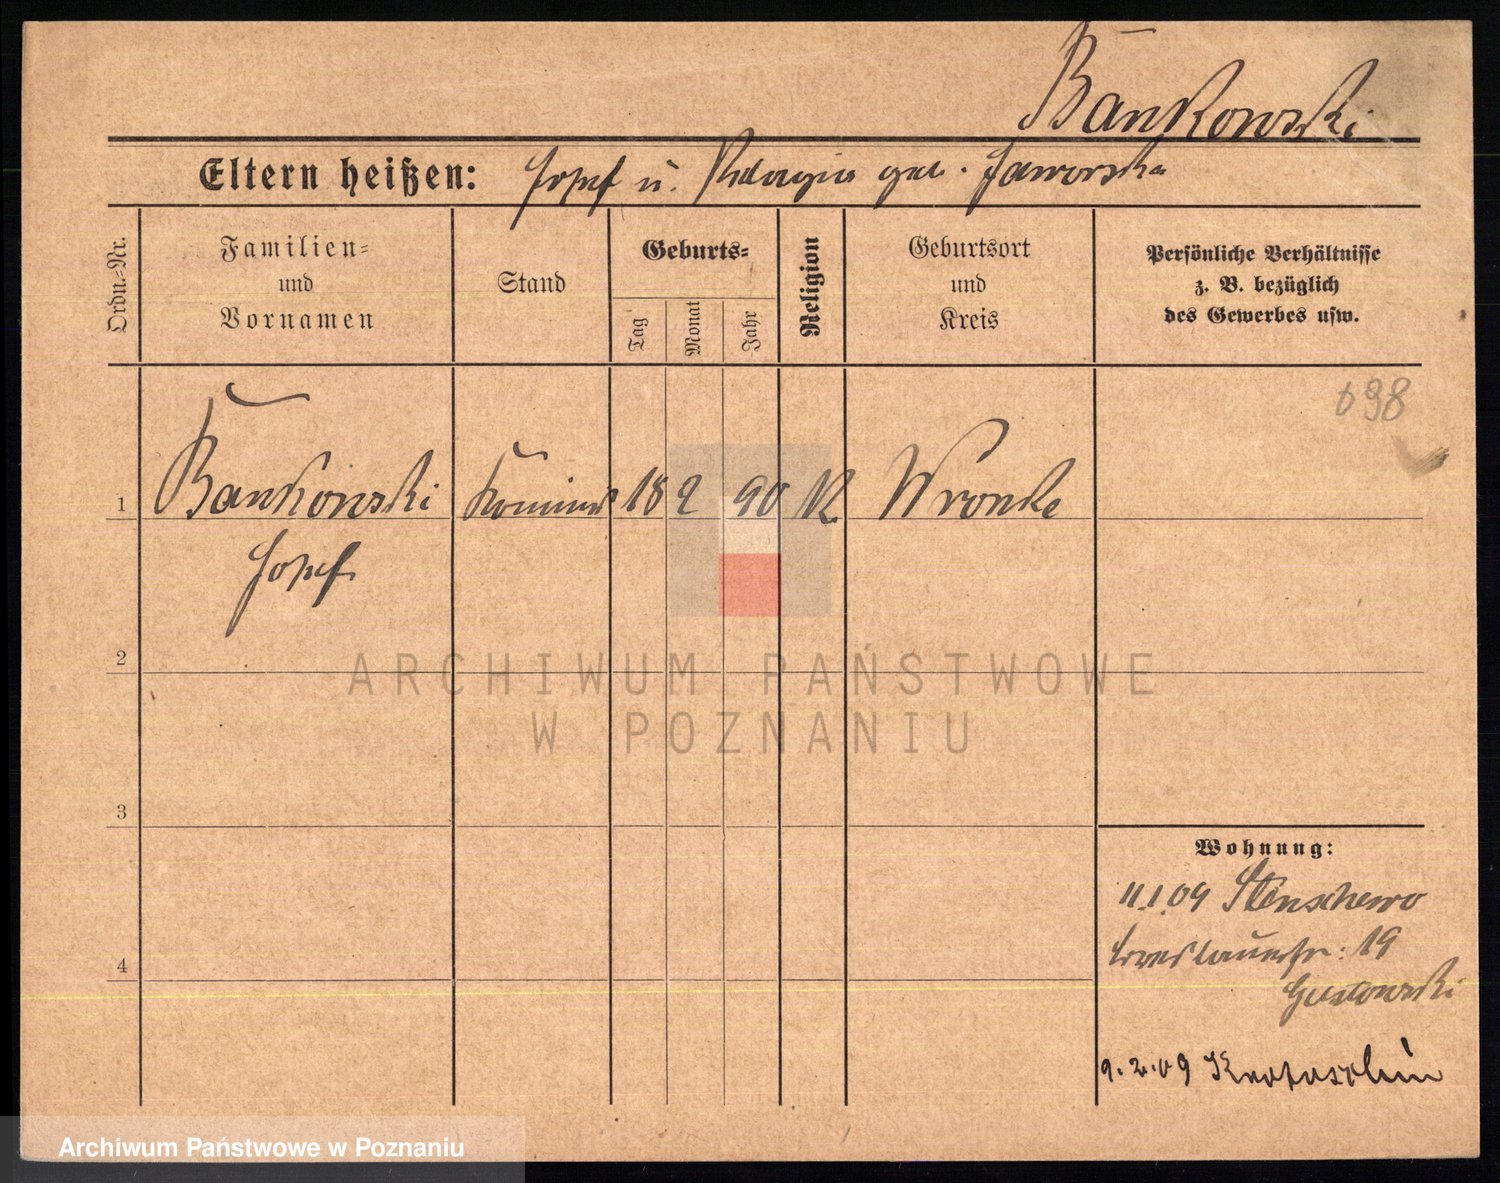 Bankowski
Eltern heißen: Josef u. Pelagia geb. Jaworska
Ordn.-Nr.
Familien- und Vornamen
Stand
Geburts-
Tag
Monat
Jahr
Religion
Geburtsort und Kreis
Persönliche Verhältnisse
z. B. bezüglich
des Gewerbes usw.
698
1 Bankowski 18 2 90 K Wronke
Josef
2
3
4
ARCHIWUM PAŃSTWOWE
W POZNANIU
Wohnung:
11.1.09 Stenschewo
Breslauerstr: 19
9.2.09 Krotoschin
Archiwum Państwowe w Poznaniu